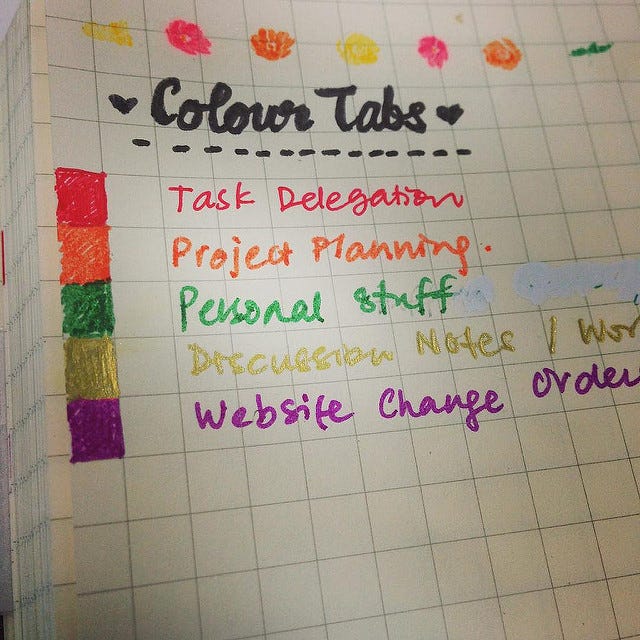 Colour Tabs
Task Delegation
Project Planning.
Personal Stuff
Discussion Notes /
Website Change